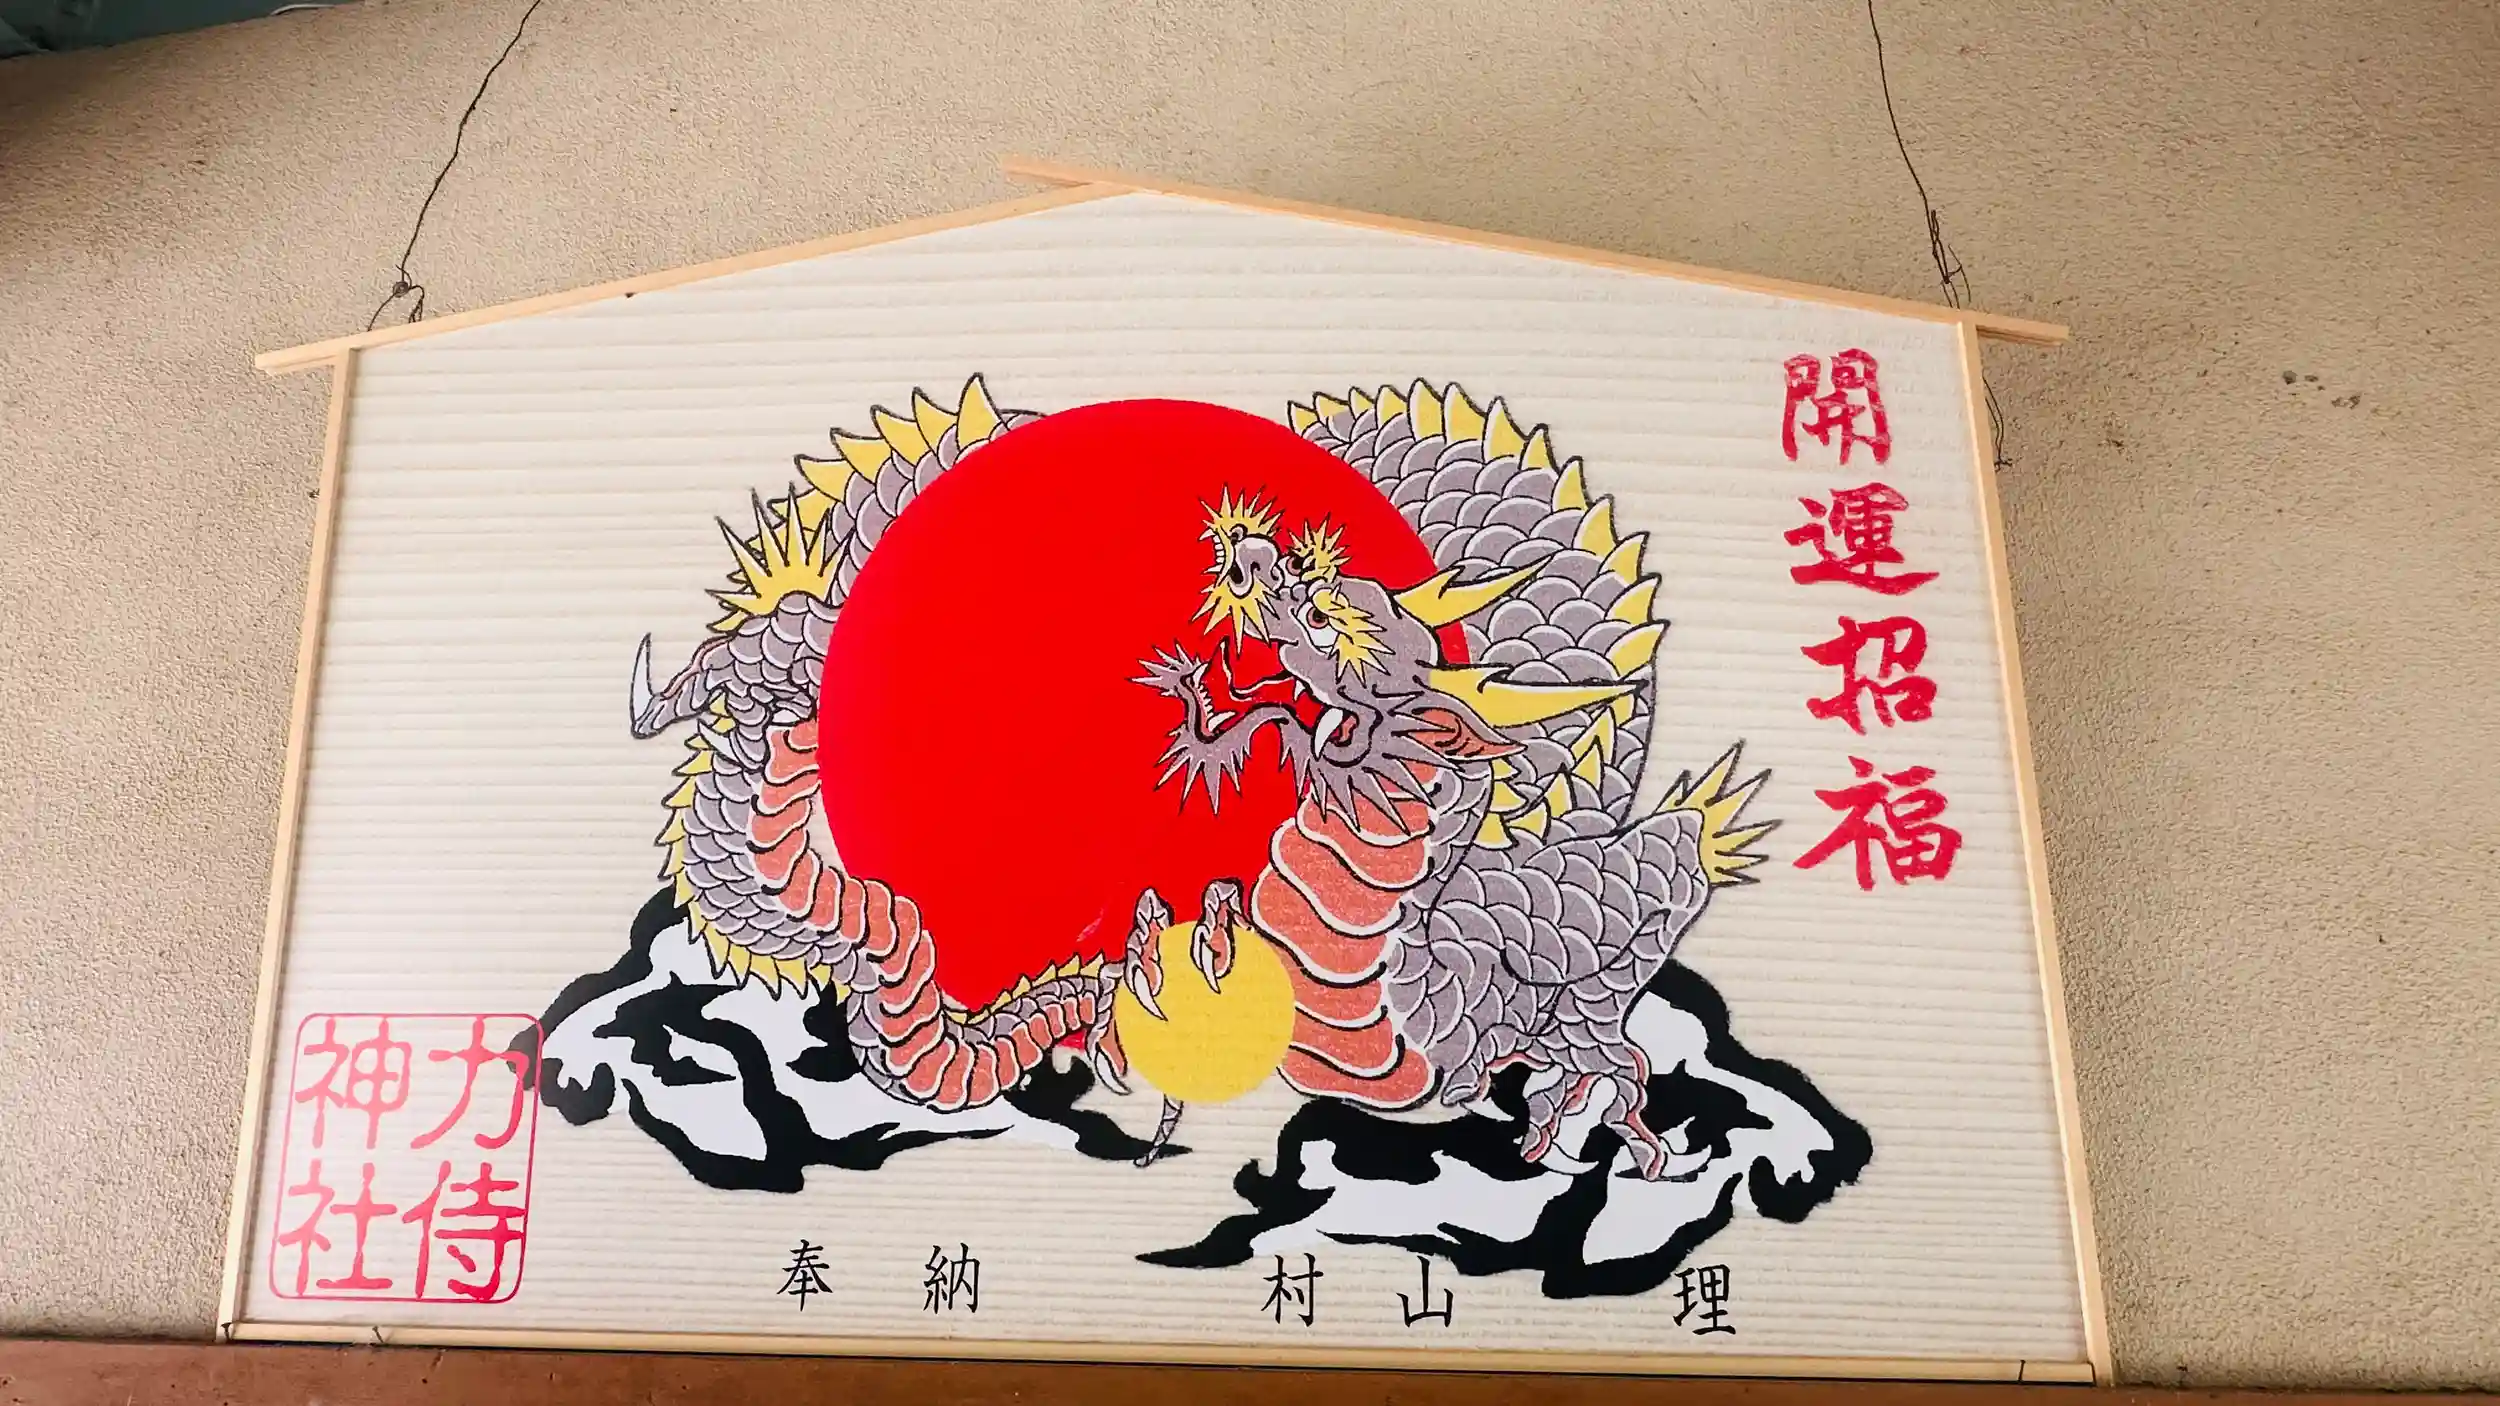 開運招福
力侍
神社
奉納 村山 理